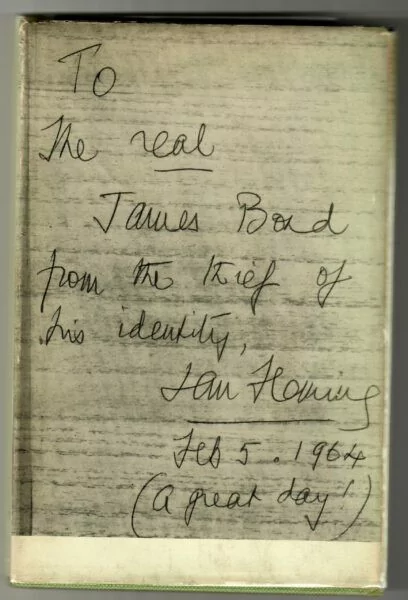 To
The real
James Bond
from the thief of
his identity,
Ian Fleming
Feb 5. 1964
(A great day!)